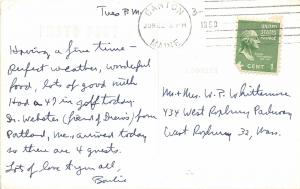 Tues P.M.
CANTON
MAINE
1950
1 CENT 1
Having a fine time -
Perfect weather, wonderful
food, lots of good
Had a 47 in golf today.
Dr. Webster (friend of) from
Portland, Me., arrived today
so there are 4 guests.
Lots of love to you all,
Mr + Mrs. W. B. Whittemore
434 West Roxbury Parkway
West Roxbury 32, Mass.